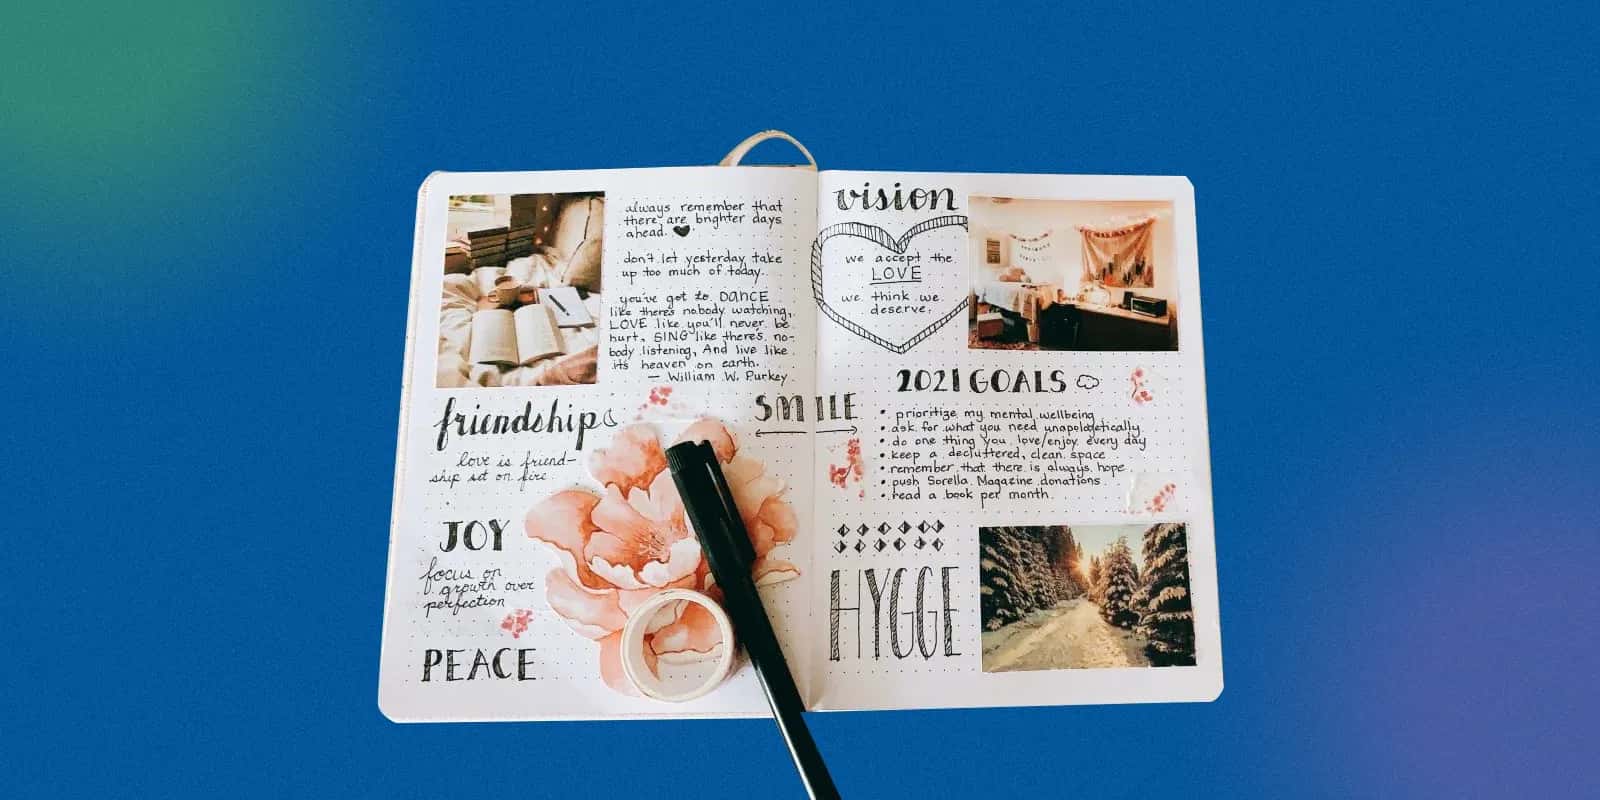 always remember that
there are brighter days
ahead.
don't let yesterday take
up too much of today.
you've got to DANCE
like there's nobody watching,
LOVE like you'll never be
hurt, SING like there's no-
body listening, And live like
it's heaven on earth.
— William W. Purkey
friendship
love is friend-
ship set on fire
JOY
focus on
growth over
perfection
PEACE
SMILE
vision
we accept the
LOVE
we think we
deserve.
2021 GOALS
• prioritize my mental wellbeing
• ask for what you need unapologetically
• do one thing you love/enjoy every day
• keep a decluttered, clean space
• remember that there is always hope
• push Sorella Magazine donations
• read a book per month
HYGGE